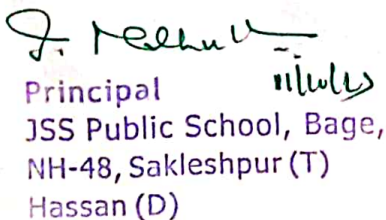 Principal
JSS Public School, Bage,
NH-48, Sakleshpur (T)
Hassan (D)